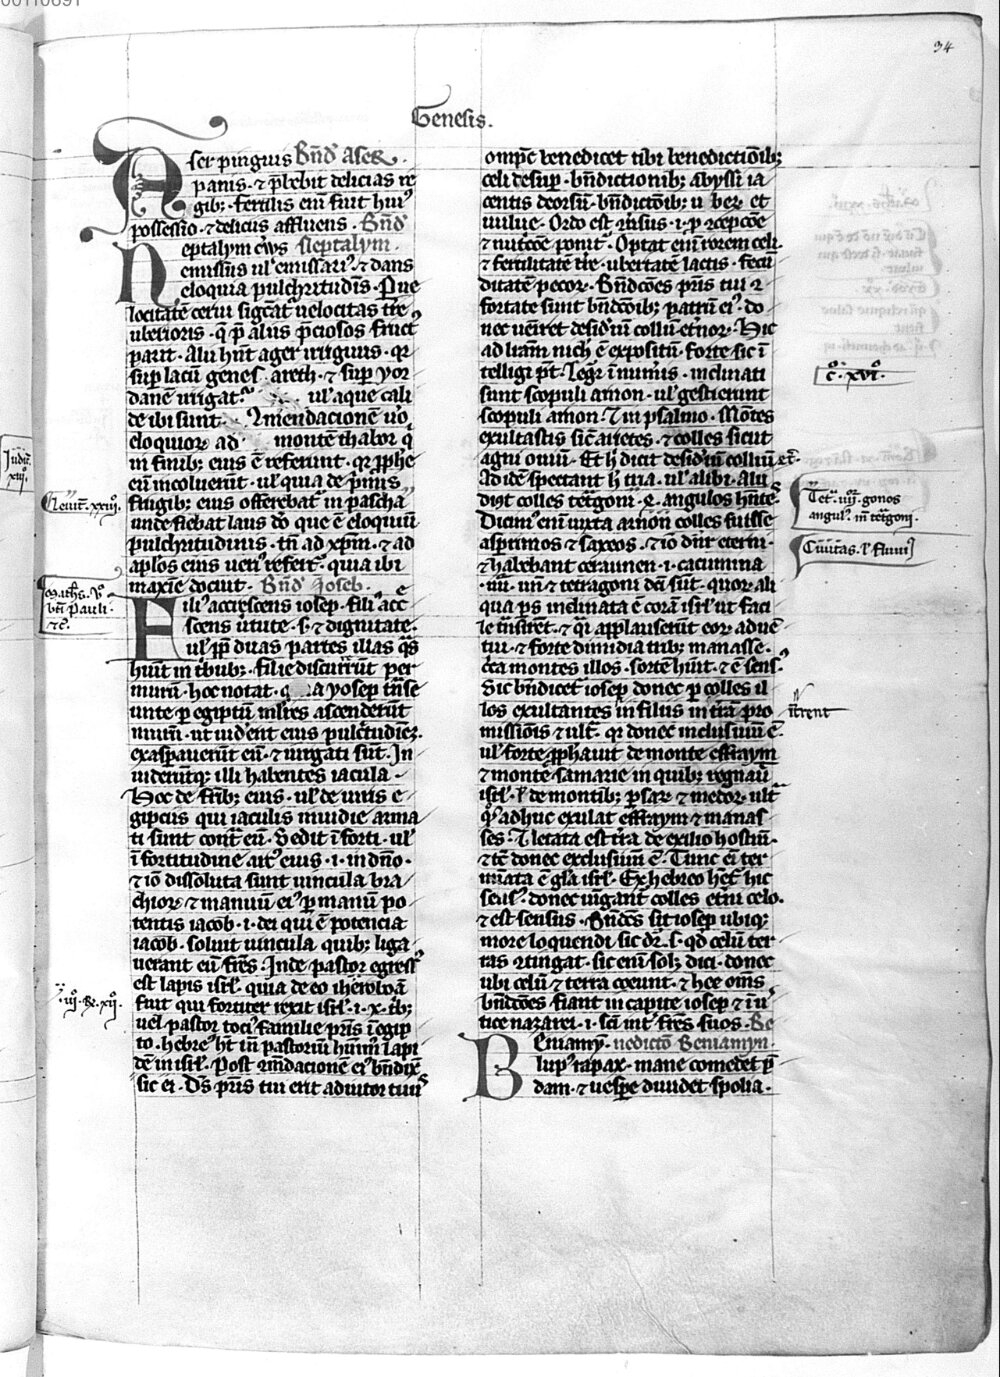 34
Genesis.
Aser pinguis Bn̄d̄ aser.
panis · ⁊ p̄bebit delicias re
gibꝫ · fertilis eni fuit huiꝰ
possessio · ⁊ deliciis affluens · Bn̄d̄
Neptalym cerūs Neptalym.
emissus ul' emissariꝰ · ⁊ dans
eloquia pulchritudīs · Que
locitatē cerui siḡcat uelocitas t̄re
uberioris · q̄ p̄ aliis p̄ciosos fruct
parit · Alii hn̄t ager irriguus · qꝛ
sup̄ lacū genes areth · ⁊ sup̄ yor
danē irrigatꝰ ul' aque cali
de ibi sunt · Amendacionē uo
eloquioꝝ ad montē thabor q̄
in finibꝫ eius ē referunt · qꝛ ꝓphe
eū incoluerūt · ul' quia de p̄mis
frugibꝫ eius offerebāt in pascha
unde fiebat laus dō que ē eloquiū
pulchritudinis · tn̄ ad xp̄m · ⁊ ad
ap̄los eius uerꝰ refert̄ · quia ibi
maxime docuit · Bn̄d̄ Joseb ·
Filiꝰ accrescens iosep · filiꝰ acc̄
scens ūtute · s · ⁊ dignitate ·
ul' ꝓp̄ duas partes illas q̄s
huit in t̄bubꝫ · filie discurrer̄ūt per
murū · hoc notat · q a yosep t̄nse
unte ꝑ egiptū ml̄res ascenderūt
murū · ut uid̄ent eius pulc̄tudiez ·
exasp̄auerunt eū · ⁊ iurgati sūt · In
uiderūtqꝫ illi habentes iacula ·
Hoc de fr̄ibꝫ eius · ul' de uiris e
gipciis qui iaculis inuidie arma
ti sunt cont̄ eū · Sedit ī forti · ul'
ī fortitudine arcꝰ eius · i · in dn̄o ·
⁊ iō dissoluta sunt uincula bra
chioꝝ ⁊ manuū eiꝰ ꝑ manū po
tentis iacob · i · dei qui ē potencia
iacob · soluit uincula quibꝫ liga
uerant eū fr̄es · Inde pastor egressꝰ
est lapis isrl' · quia de eo iheroboā
fuit qui fortiter rexit isrl' · i · x · t̄bꝫ
uel pastor tociꝰ familie pr̄is ī egip
to · hebreꝰ ht̄ in pastoriū hui lapi
dē in isrl' · Post cōm̄dacionē eiꝰ bn̄dix̄
sic ei · Dꝰ pr̄is tui erit adiutor tuus
omp̄c benedicet tibi benedictiōibꝫ
celi desup̄ · bn̄dictionibꝫ abyssi ia
centis deorsū · bn̄dictōibꝫ u ber̄ et
uulue · Ordo est rūsus · i · p̄ ꝯcepcōe
⁊ nūtcōe ponit · Optat eni rorem celi
⁊ fertilitatē t̄re · ubertatē lactis · fecū
ditatē pecoꝝ · Bn̄dcōes pr̄is tui ꝯ
fortate sunt bn̄dcōibꝫ patrū eiꝰ · do
nec ueīret desid̄iū colliū et̄noꝝ · Hic
ad liam̄ nich ē expositū · forte sic ī
telligi pt̄ · Legr̄ ī numis · inclinati
sunt scopuli arnon · ul' gestierunt
scopuli arnon · ⁊ in psalmo · Mōtes
exultastis sic̄ arietes · ⁊ colles sicut
agni ouiū · Et h̄ dicit desid̄iū colliū et̄.
Ad idē spectant h̄ it̄ia · ul' alibi · Alii
dn̄t colles tet̄goni · qꝛ · angulos hn̄tes
Dicimꝰ eni iuxta arnon colles fuisse
asp̄rimos ⁊ saxeos · ⁊ iō dn̄r eterni ·
⁊ habebant ceraunen · i · cacumina
·iiii· un̄ ⁊ tetragoni dc̄i sūt · quoꝝ ali
qua ps̄ inclinata ē corā isrl' ut faci
le t̄nsirēt · ⁊ q̄i applauserūt eoꝝ aduē
tui · ⁊ forte dimidia tribꝫ manasse ·
c̄ca montes illos · sortē huit · ⁊ ē sensꝰ
Sic bn̄dicet̄ iosep donec ꝑ colles il
los exultantes in filiis in t̄rā pro
missiōis ⁊ ult̄ · qꝛ donec inclusiuū ē ·
ul' forte ꝓphauit de monte effraym
⁊ monte samarie in quibꝫ regnaū
isrl' · l' de montibꝫ p̄saꝝ ⁊ medoꝝ ult̄
q̄s adhuc exulat effraym ⁊ manas
ses · ⁊ letata est t̄ra de exilio hostiū ·
⁊ tē donec exclusiuū ē · Tunc eni ter
minata ē gl̄a isrl' · Ex hebreo het̄ hic
sensꝰ · donec iugant̄ colles et̄ni celo ·
⁊ est sensus · Bn̄dcōs sit iosep ubiqꝫ
more loquendi sic dr̄ · s · qd̄ celū ter
ras ꝯtingat · sic eni solꝫ dici · donec
ubi celū ⁊ terra coeunt · ⁊ hee om̄s
bn̄dcōes fiant in capite iosep ⁊ ī ū
tice nazarei · i · sc̄i int̄ fr̄es suos · Be
Beniamȳ · nedictō Beniamyn ·
lupꝰ rapax · mane comedet p̄
dam · ⁊ uesꝑe diuidet spolia ·
Judic̄
xiij.
Leuit̄. xxiij.
Math̄s. v.
bt̄i Pauli.
⁊c̄.
·iij· R̄. xij.
c̄. xvi.
Tet̄. iiij. gonos
angulꝰ. in tet̄goni.
Ciuitas. l' fluuiꝰ
n̄trent